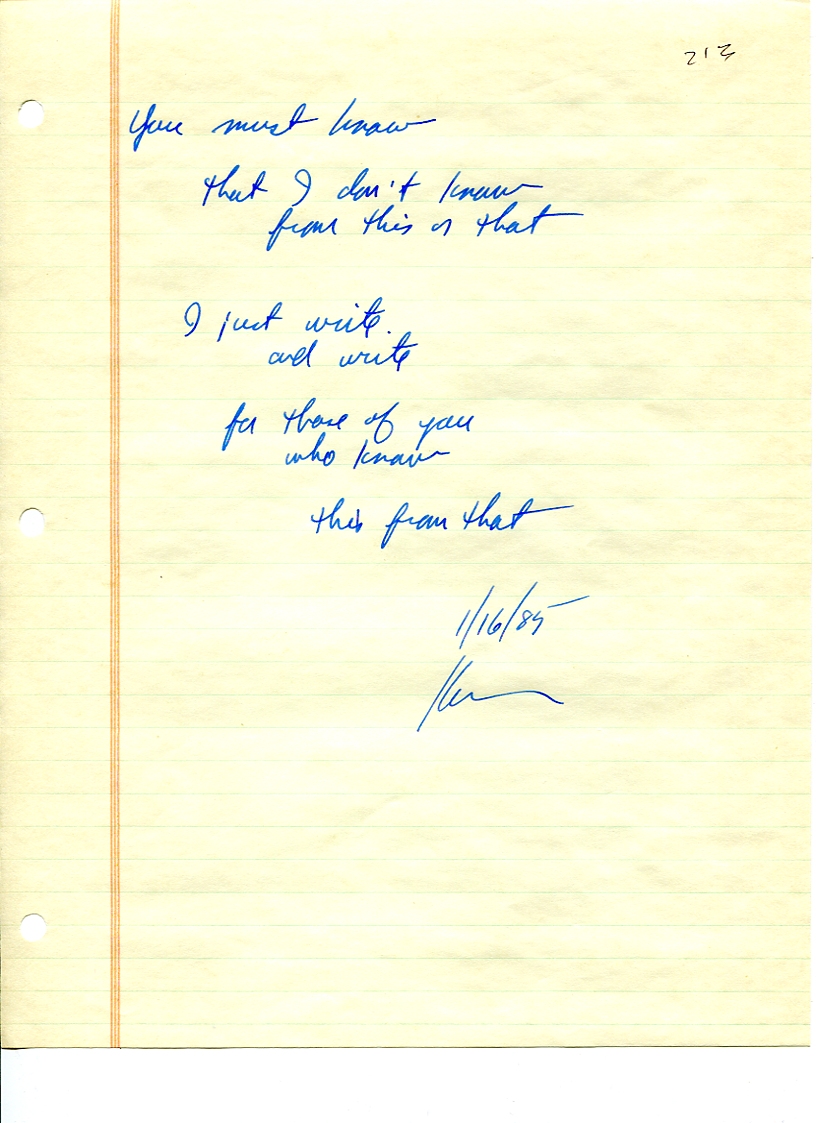 213
You must know
that I don't know
from this or that
I just write.
and write
for those of you
who know
this from that
1/16/85